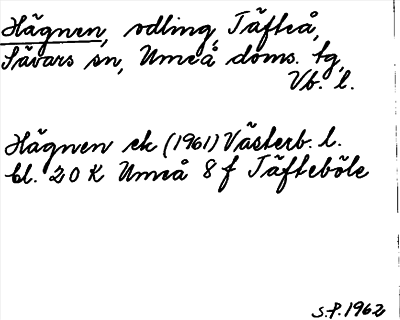 Hägnen, odling, Täfteå,
Sävars sn, Umeå doms. tg,
Vb. l.
Hägnen ek (1961) Västerb. l.
bl. 20 K Umeå 8 f Täfteböle
S.P. 1962